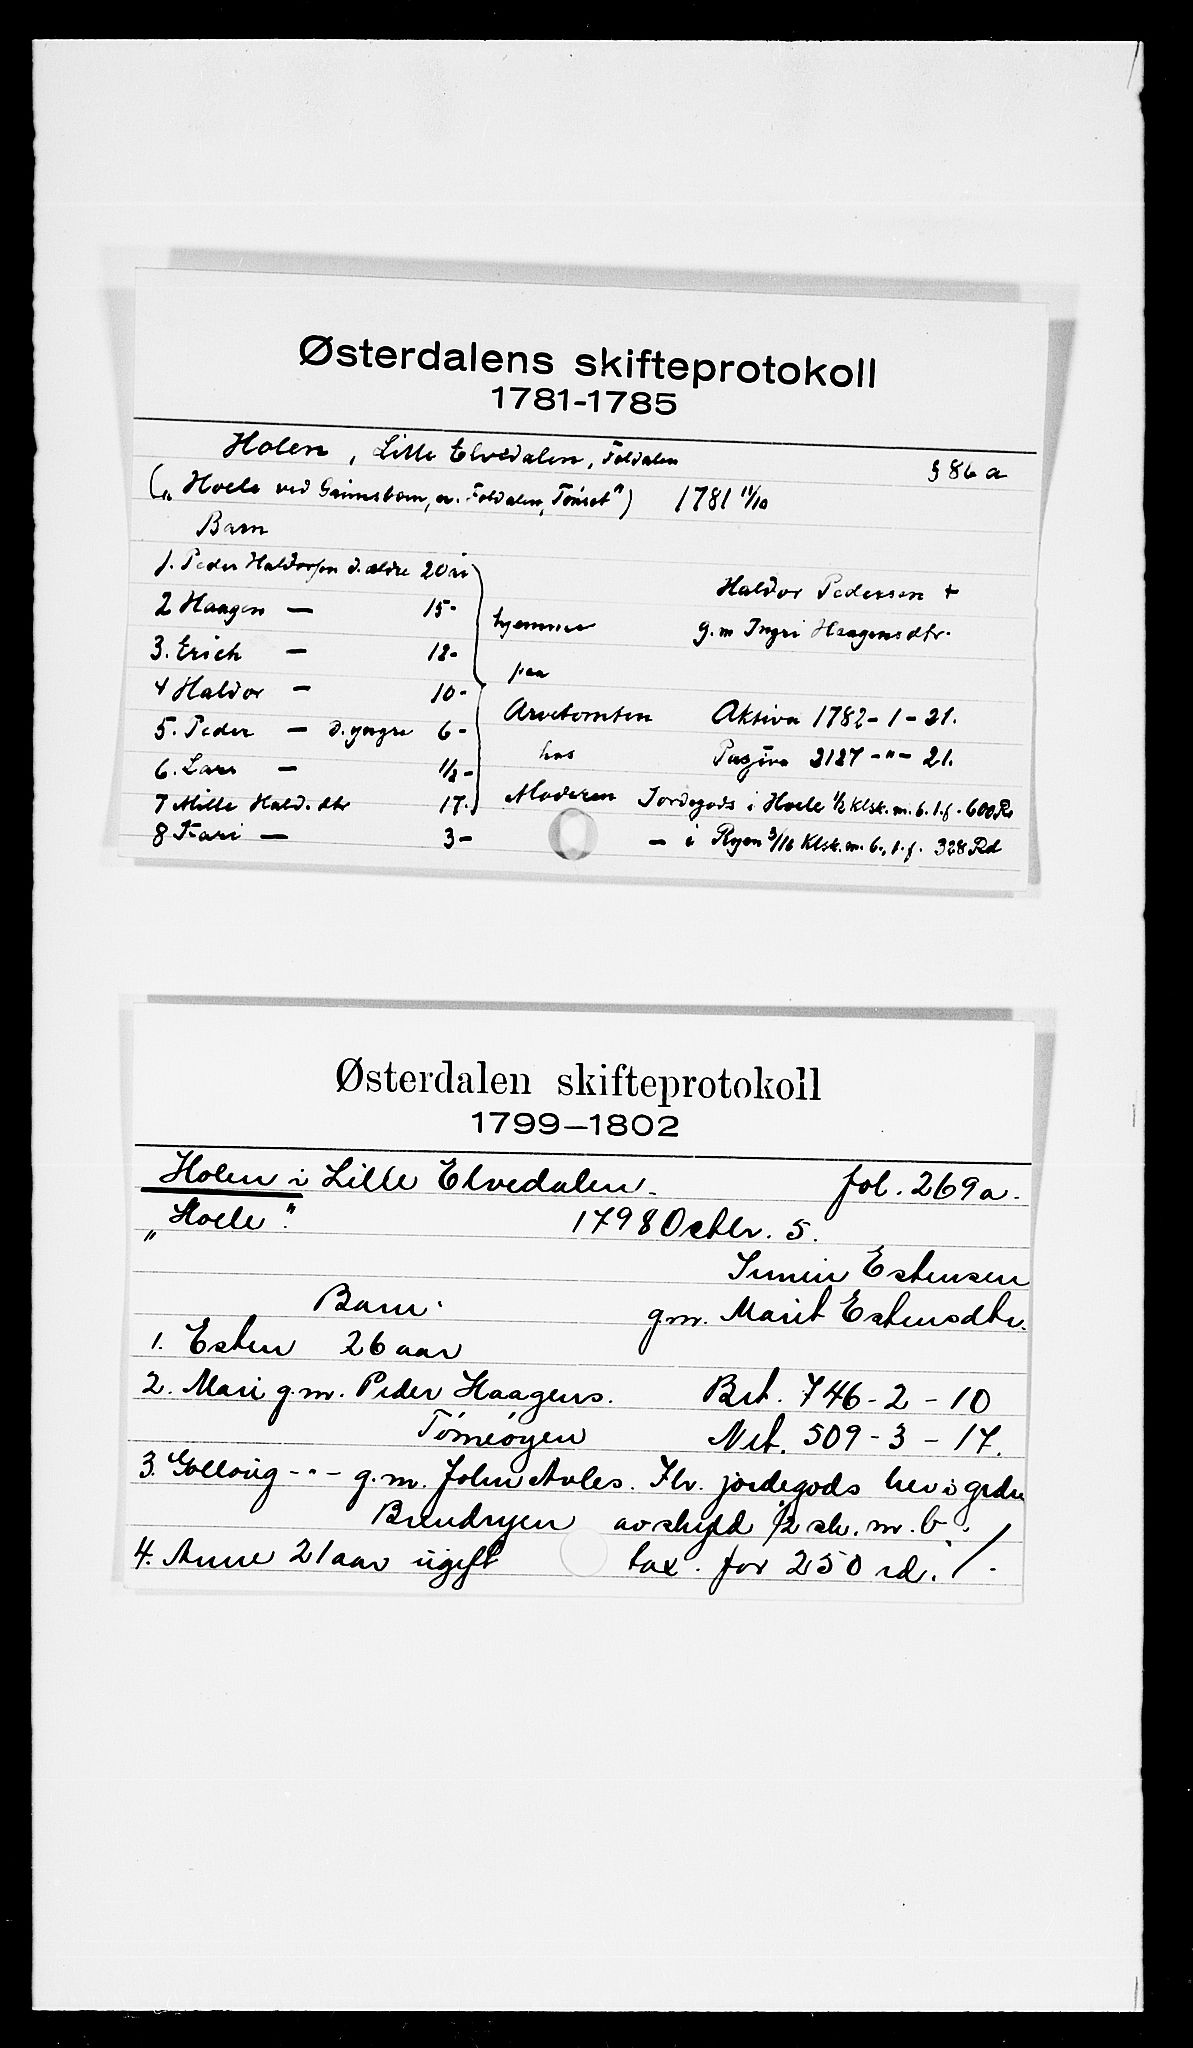 Østerdalens skifteprotokoll
1781-1785
Holen, Lille Elvedalen, Foldalen § 86 a
(„Hoele ved Grimsbom, n. Foldalen, Tønset") 1781 11/10
Barn
1. Peder Haldorsen d. ældre 20
Haldor Pedersen +
2 Haagen — 15-
hjemme
g.m Ingri Haagensdtr.
3. Erich — 12-
paa
4 Haldor — 10-
Arvetomten
Aktiva 1782-1-21.
5. Peder — d. yngre 6-
hos
Pasiva 2127 -"- 21.
6. Lars — 1/2-
Moderen
Jordegods i Hoele 1/2 klsk. m. b. l. f. 600 Rd
7 Mille Hald. dtr 17.
8 Kari — 3-
— i Ryen 3/16 Klsk. m. b., l. f. 328 Rd
Østerdalen skifteprotokoll
1799—1802
Holen i Lille Elvedalen. fol. 269 a.
„Hoele". 1798 Octbr. 5.
Simen Estensen
Barn. g.m. Marit Estensdtr.
1. Esten 26 aar
2. Mari g.m. Peder Haagens. Brt. 746-2-10
Net. 509-3-17.
3. Golloug -"- g.m. John Avles. Flr. jordegods her i grdn
Brendryen av skyld 1/2 sk. m. b.
4. Anne 21 aar ugift tax. for 250 rd. ./.